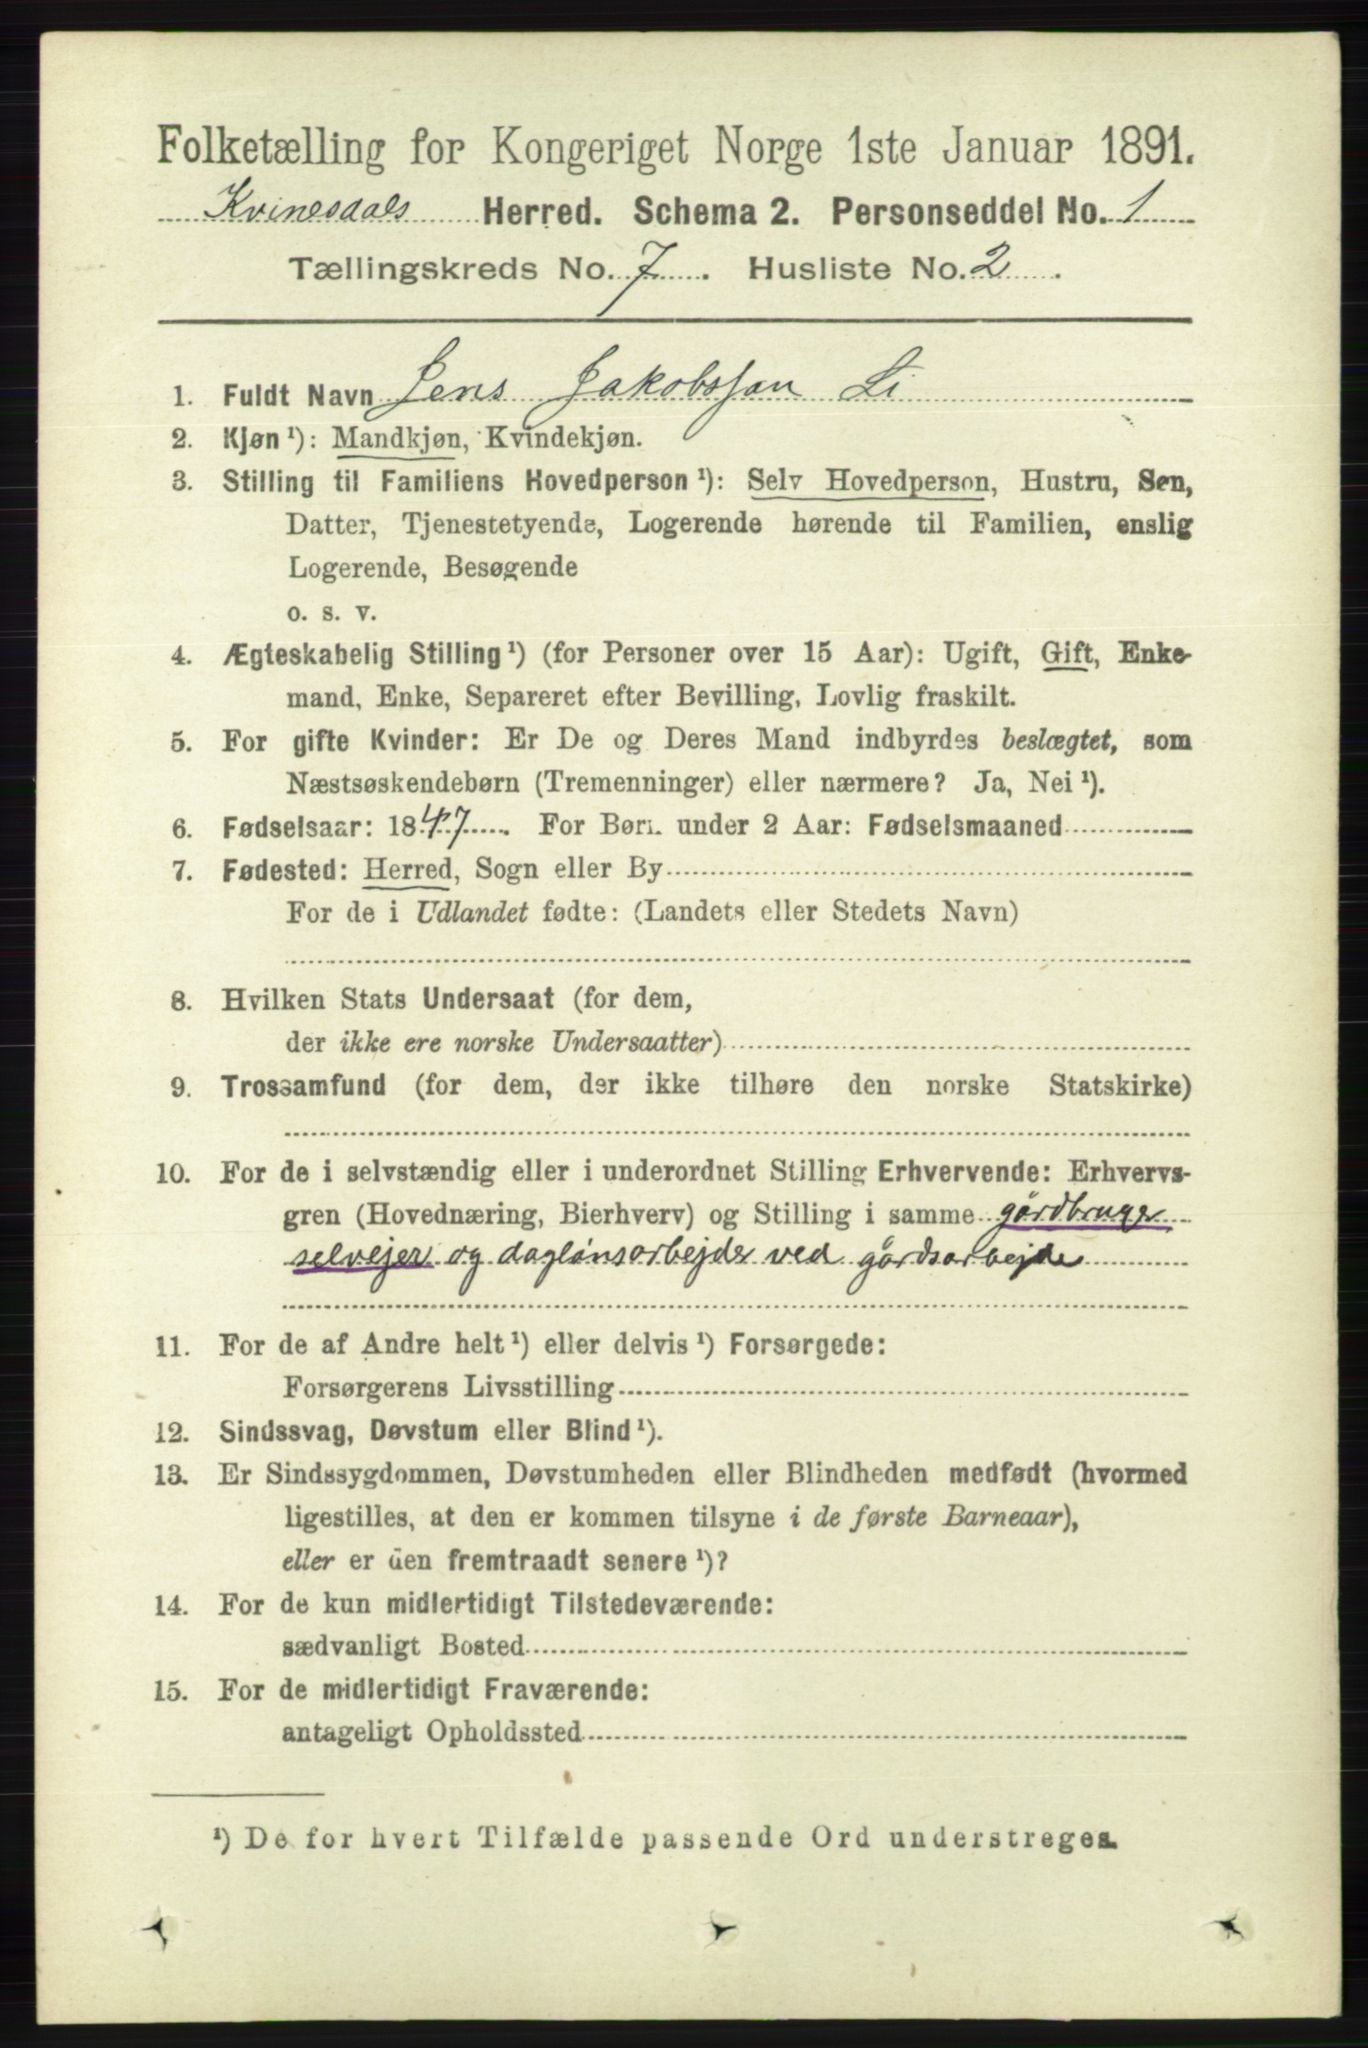 Folketælling for Kongeriget Norge 1ste Januar 1891.
Kvinesdals Herred. Schema 2. Personseddel No. 1
Tællingskreds No. 7. Husliste No. 2.
1. Fuldt Navn Jens Jakobsson Li
2. Kjøn ¹): Mandkjøn, Kvindekjøn.
3. Stilling til Familiens Hovedperson ¹): Selv Hovedperson, Hustru, Søn,
Datter, Tjenestetyende, Logerende hørende til Familien, enslig
Logerende, Besøgende
o. s. v.
4. Ægteskabelig Stilling ¹) (for Personer over 15 Aar): Ugift, Gift, Enke-
mand, Enke, Separeret efter Bevilling, Lovlig fraskilt.
5. For gifte Kvinder: Er De og Deres Mand indbyrdes beslægtet, som
Næstsøskendebørn (Tremenninger) eller nærmere? Ja, Nei ¹).
6. Fødselsaar: 1847. For Børn under 2 Aar: Fødselsmaaned
7. Fødested: Herred, Sogn eller By
For de i Udlandet fødte: (Landets eller Stedets Navn)
8. Hvilken Stats Undersaat (for dem,
der ikke ere norske Undersaatter)
9. Trossamfund (for dem, der ikke tilhøre den norske Statskirke)
10. For de i selvstændig eller i underordnet Stilling Erhvervende: Erhvervs-
gren (Hovednæring, Bierhverv) og Stilling i samme gårdbruger
selvejer og daglønsarbejder ved gårdsarbejde
11. For de af Andre helt ¹) eller delvis ¹) Forsørgede:
Forsørgerens Livsstilling
12. Sindssvag, Døvstum eller Blind ¹).
13. Er Sindssygdommen, Døvstumheden eller Blindheden medfødt (hvormed
ligestilles, at den er kommen tilsyne i de første Barneaar),
eller er den fremtraadt senere ¹)?
14. For de kun midlertidigt Tilstedeværende:
sædvanligt Bosted
15. For de midlertidigt Fraværende:
antageligt Opholdssted
¹) De for hvert Tilfælde passende Ord understreges.